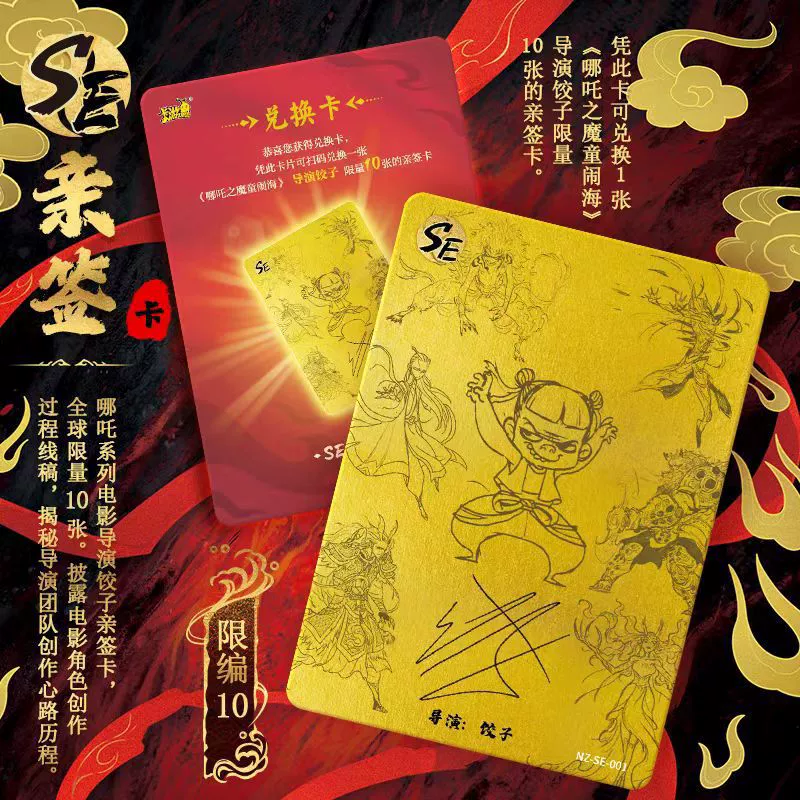 SE
亲签
卡
哪吒系列电影导演饺子亲签卡，
全球限量10张。披露电影角色创作
过程线稿，揭秘导演团队创作心路历程。
凭此卡可兑换1张
《哪吒之魔童闹海》
导演饺子限量
10张的亲签卡。
兑换卡
恭喜您获得兑换卡，
凭此卡片可扫码兑换一张
《哪吒之魔童闹海》导演饺子 限量10张的亲签卡
SE
·SE
限编
10
SE
导演：饺子
NZ-SE-001